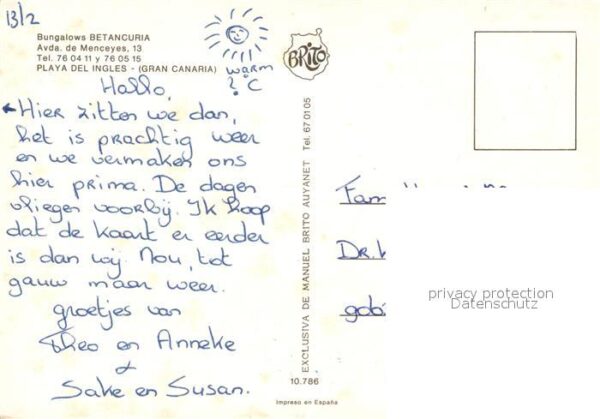 13/2
Bungalows BETANCURIA
Avda. de Menceyes, 13
Tel. 76 04 11 y 76 05 15
PLAYA DEL INGLES - (GRAN CANARIA)
warm
? °C
BRITO
Hallo,
Hier zitten we dan,
het is prachtig weer
en we vermaken ons
hier prima. De dagen
vliegen voorbij. Ik hoop
dat de kaart er eerder
is dan wij. Nou, tot
gauw maar weer.
groetjes van
Theo en Anneke
&
Sake en Susan.
EXCLUSIVA DE MANUEL BRITO AUYANET Tel. 67 01 05
10.786
Impreso en España
Fam
Dr.
privacy protection
Datenschutz